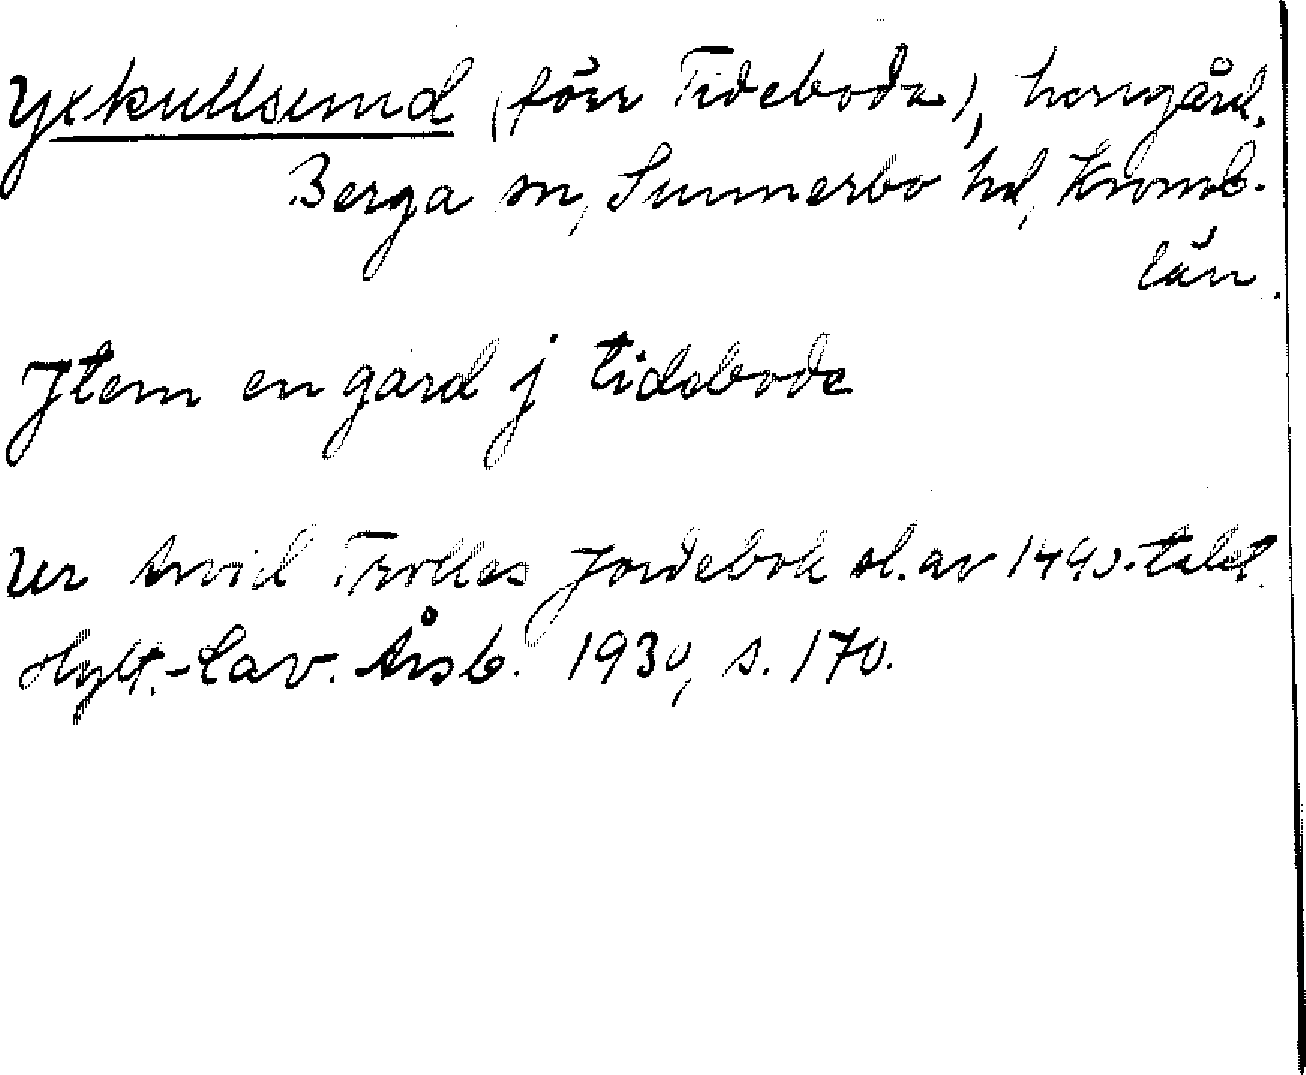 Yxkullsund (förr Tideboda), herrgård.
Berga sn, Sunnerbo hd, Kronob.
län.
Jtem en gard j tidebode
Ur Arvid Trolles Jordebok sl. av 1490-talet.
Hylt.-Cav. Årsb. 1930, s. 170.